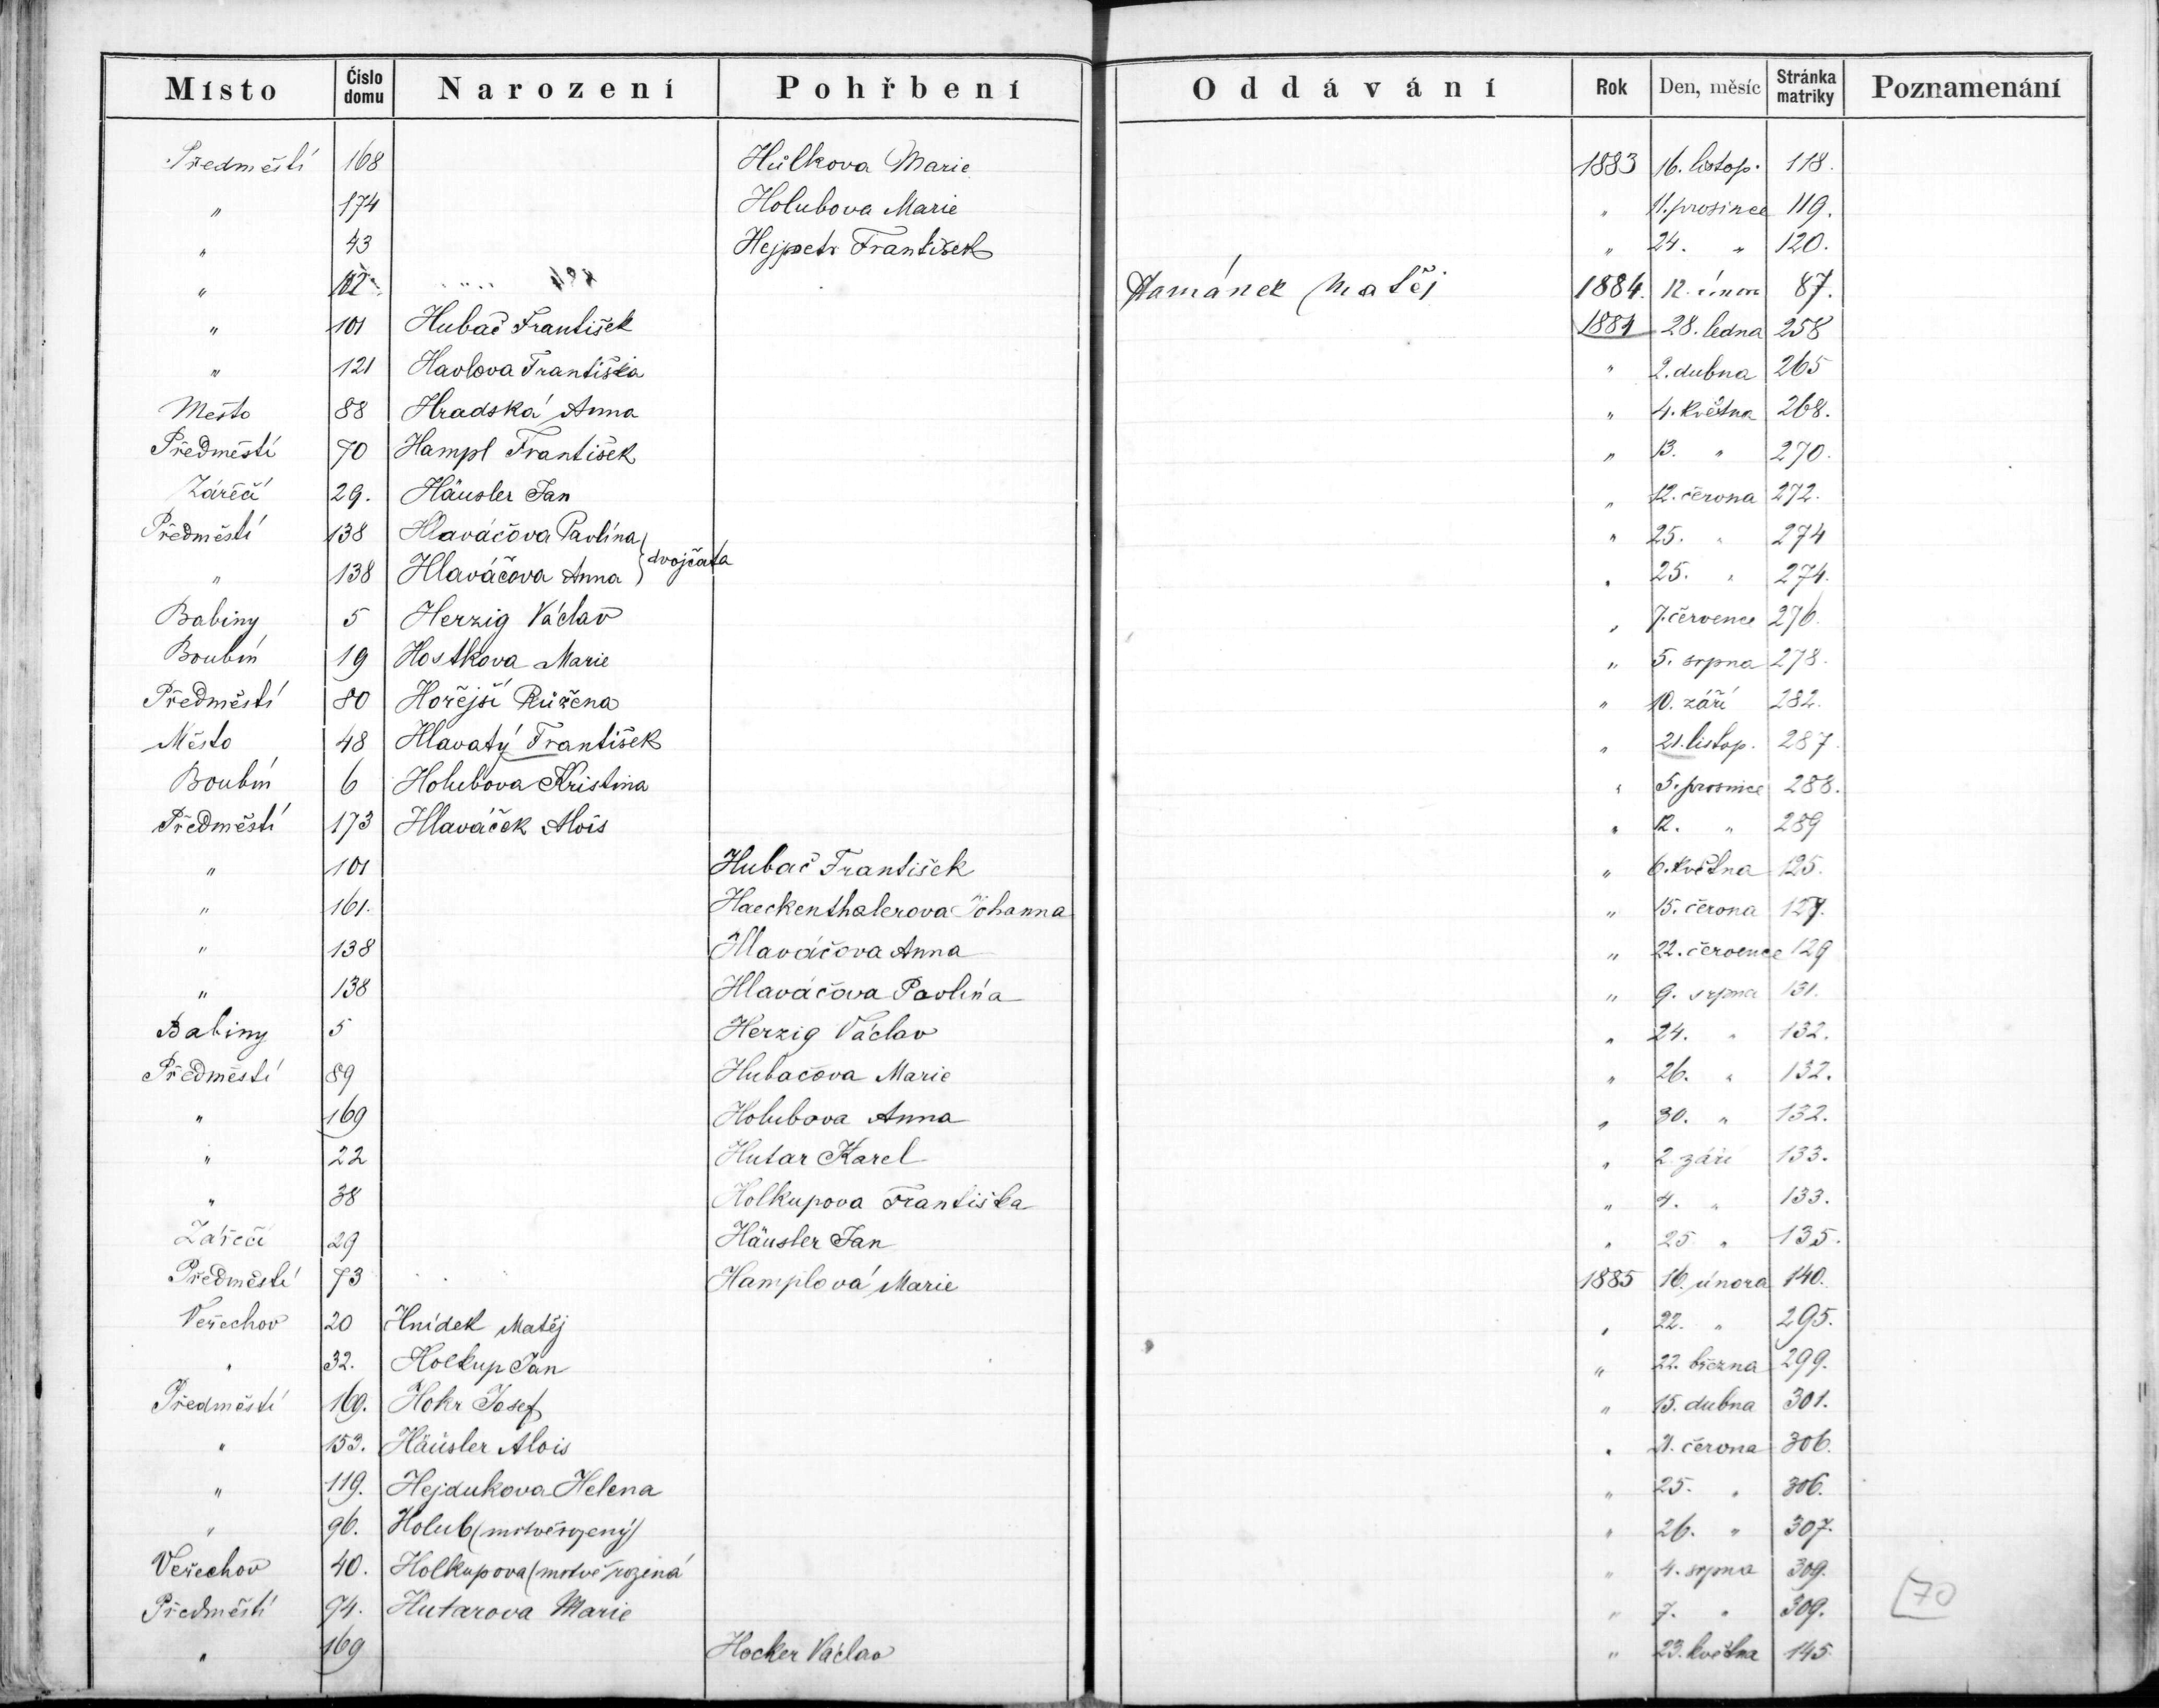 Místo Číslo domu Narození Pohřbení Oddávání Rok Den, měsíc Stránka matriky Poznamenání
Předměstí 168 Hůlkova Marie 1883 16. listop. 118.
" 174 Holubova Marie " 11. prosince 119.
" 43 Hejpetr František " 24. " 120.
" 102 Hamánek Matěj 1884. 12. února 87.
" 101 Hubač František 1884 28. ledna 258
" 121 Havlova Františka " 2. dubna 265
Město 88 Hradská Anna " 4. května 268.
Předměstí 70 Hampl František " 13. " 270.
Záréčí 29. Häusler Jan " 12. června 272.
Předměstí 138 Hlaváčova Pavlína " 25. " 274
dvojčata
" 138 Hlaváčova Anna " 25. " 274.
Babiny 5 Herzig Václav " 7. července 276.
Boubín 19 Hostkova Marie " 5. srpna 278.
Předměstí 80 Hořejší Růžena " 10. září 282.
Město 48 Hlavatý František " 21. listop. 287.
Boubín 6 Holubova Kristina " 5. prosince 288.
Předměstí 173 Hlaváček Alois " 12. " 289
" 101 Hubač František " 6. května 125.
" 161. Haeckenthalerova Johanna " 15. června 127.
" 138 Hlaváčova Anna " 22. července 129
" 138 Hlaváčova Pavlína " 9. srpna 131.
Babiny 5 Herzig Václav " 24. " 132.
Předměstí 89 Hubačova Marie " 26. " 132.
" 169 Holubova Anna " 30. " 132.
" 22 Hutar Karel " 2. září 133.
" 38 Holkupova Františka " 4. " 133.
Zářečí 29 Häusler Jan " 25. " 135.
Předměstí 73 Hamplová Marie 1885 16. února 140.
Veřechov 20 Hnídek Matěj " 22. " 295.
" 32. Holkup Jan " 22. března 299.
Předměstí 169. Hokr Josef " 15. dubna 301.
" 153. Häusler Alois " 21. června 306.
" 119. Hejdukova Helena " 25. " 306.
" 96. Holub (mrtvěrozený) " 26. " 307.
Veřechov 40. Holkupova (mrtvě rozená " 4. srpna 309.
Předměstí 94. Hutarova Marie " 7. " 309.
70
" 169 Hocker Václav " 23. května 145.